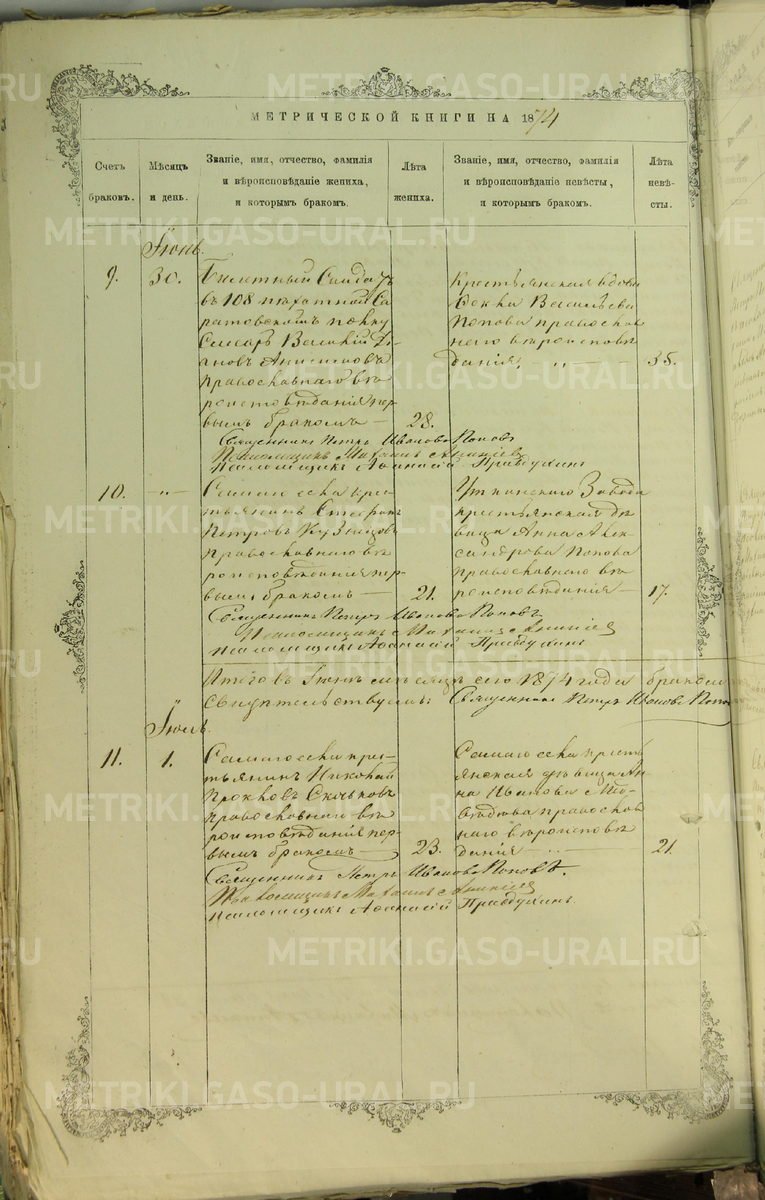 МЕТРИЧЕСКОЙ КНИГИ НА 1874
Счетъ браковъ.
Мѣсяцъ и день.
Званіе, имя, отчество, фамилія
и вѣроисповѣданіе жениха,
и которымъ бракомъ.
Лѣта жениха.
Званіе, имя, отчество, фамилія
и вѣроисповѣданіе невѣсты,
и которымъ бракомъ.
Лѣта невѣ-
сты.
Іюнь.
9.
30.
Билетный Солдатъ
въ 108 пѣхотной Са
ратовскомъ полку
Василій
ановъ
православнаго вѣ
роисповѣданія пер
вымъ бракомъ
28.
Крестьянская вдова
Васильева
Попова православ
наго вѣроисповѣ
данія,
35.
Священникъ Петръ Ивановъ Поповъ
Михаилъ
Псаломщикъ Афанасій
10.
Села кре
стьянинъ Стефанъ
Петровъ Кузнецовъ
православнаго вѣ
роисповѣданія пер
вымъ бракомъ
21.
Уткинскаго Завода
крестьянская дѣ
вица Анна Алек
сандрова Попова
православнаго вѣ
роисповѣданія
17.
Священникъ Петръ Ивановъ Поповъ
Михаилъ
Псаломщикъ Афанасій
Итого въ Іюнѣ мѣсяцѣ сего 1874 года браковъ
Свидѣтельствуемъ: Священникъ Петръ Ивановъ Попов
Іюль.
11.
1.
Самаго села крес-
тьянинъ Николай
православнаго вѣ
роисповѣданія пер-
вымъ бракомъ
23.
Самаго села кресть
янская дѣвица Ан
на Иванова Мѣд-
вѣдева православ
наго вѣроисповѣ
данія
21.
Священникъ Петръ Ивановъ Поповъ.
Михаилъ
Псаломщикъ Афанасій
METRIKI.GASO-URAL.RU